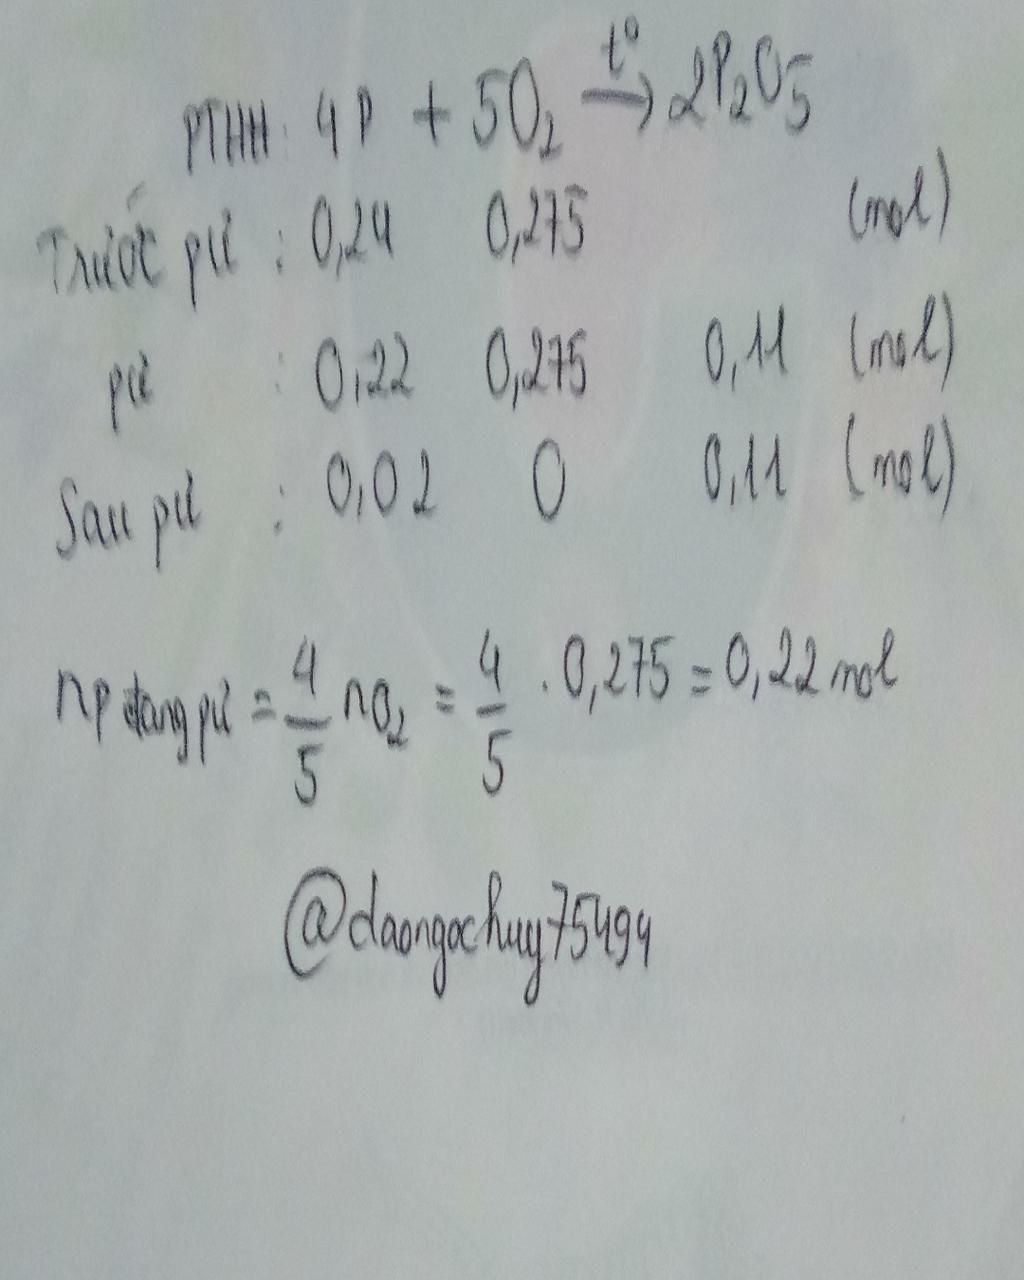 PTHH: 4P + 5O₂ t°→ 2P₂O₅
Trước pư : 0,24 0,275 (mol)
pư : 0,22 0,275 0,11 (mol)
Sau pư : 0,02 0 0,11 (mol)
nP đang pư = 4/5 nO₂ = 4/5 . 0,275 = 0,22 mol
@daongochuy75494